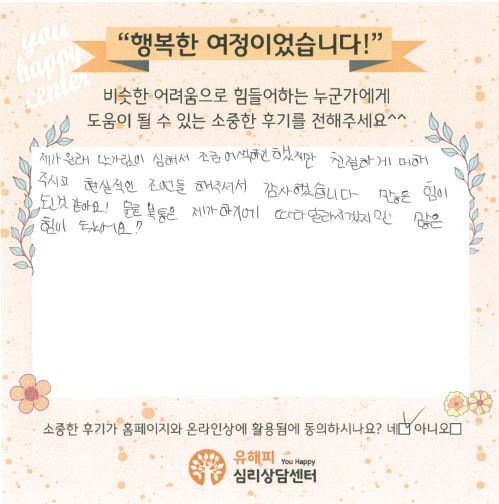 you
happy
center
“행복한 여정이었습니다!”
비슷한 어려움으로 힘들어하는 누군가에게
도움이 될 수 있는 소중한 후기를 전해주세요^^
제가 원래 낯가림이 심해서 조금 어색하긴 했지만 친절하게 대해
주시고 현실적인 조언들 해주셔서 감사했습니다 많은 힘이
된것 같아요! 물론 보통은 제가하기에 따라 달라지겠지만 많은
힘이 됐어요?
소중한 후기가 홈페이지와 온라인상에 활용됨에 동의하시나요? 네☑ 아니오☐
유해피 You Happy
심리상담센터